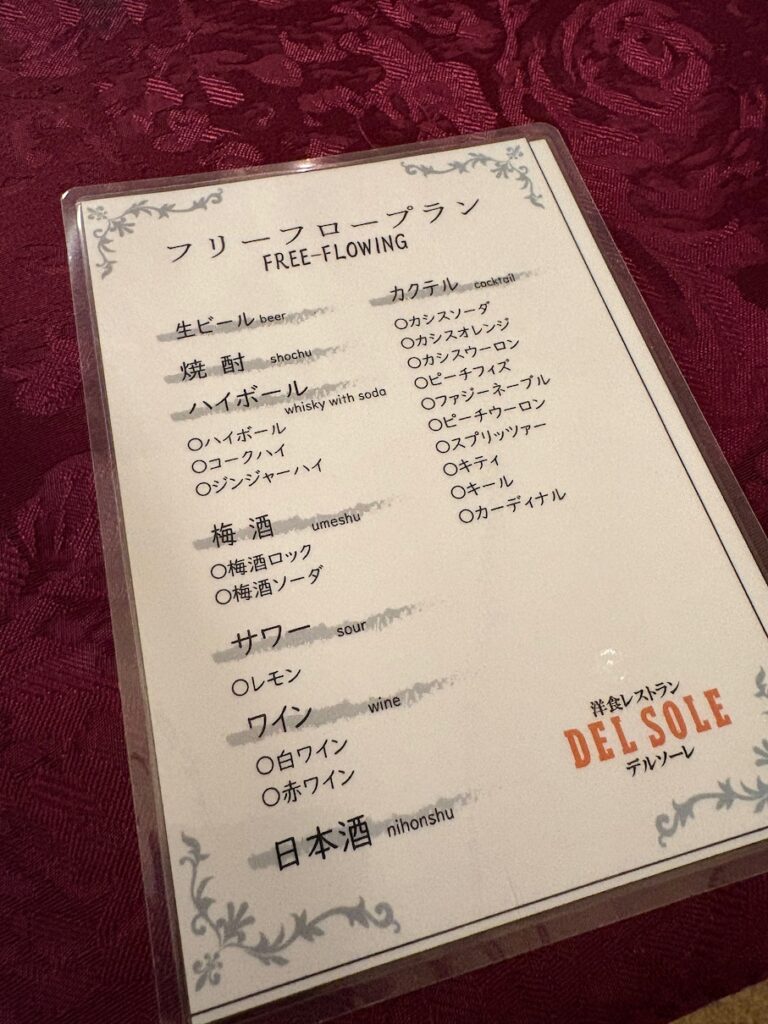 フリーフロープラン
FREE-FLOWING
生ビール beer
焼酎 shochu
ハイボール whisky with soda
○ハイボール
○コークハイ
○ジンジャーハイ
梅酒 umeshu
○梅酒ロック
○梅酒ソーダ
サワー sour
○レモン
ワイン wine
○白ワイン
○赤ワイン
日本酒 nihonshu
カクテル cocktail
○カシスソーダ
○カシスオレンジ
○カシスウーロン
○ピーチフィズ
○ファジーネーブル
○ピーチウーロン
○スプリッツァー
○キティ
○キール
○カーディナル
洋食レストラン
DEL SOLE
デルソーレ